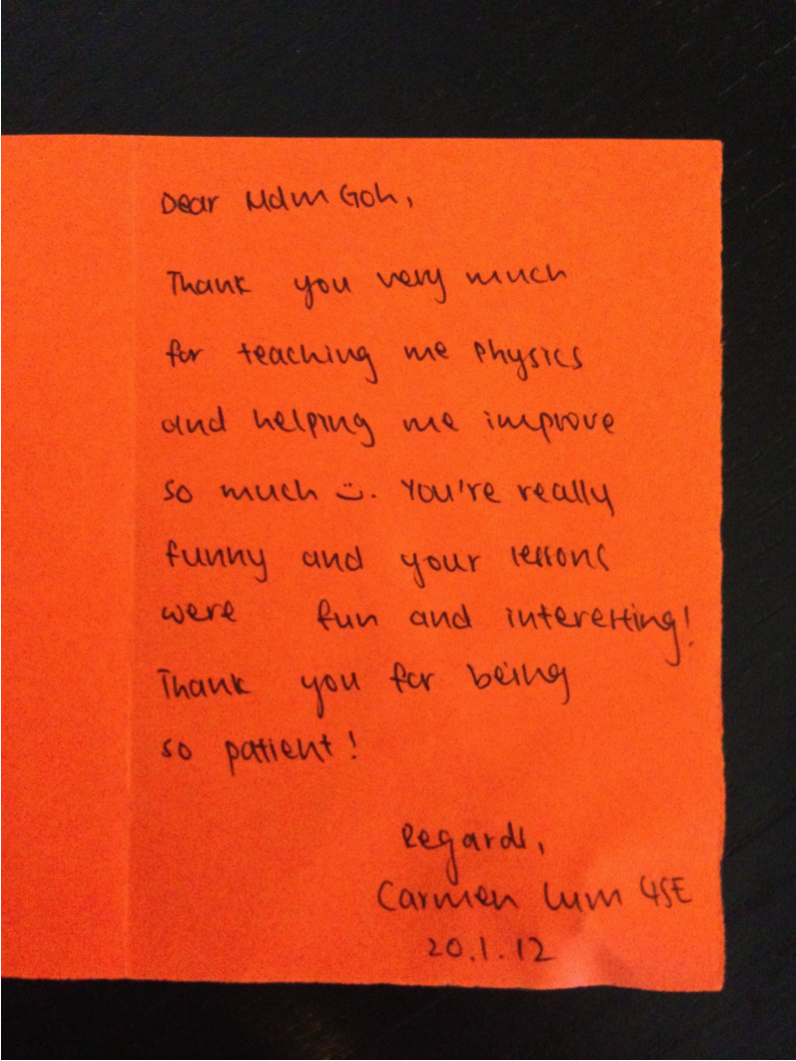 Dear Mdm Goh,
Thank you very much
for teaching me Physics
and helping me improve
so much :). You're really
funny and your lessons
were fun and interesting!
Thank you for being
so patient!
Regards,
Carmen Lum 4SE
20.1.12